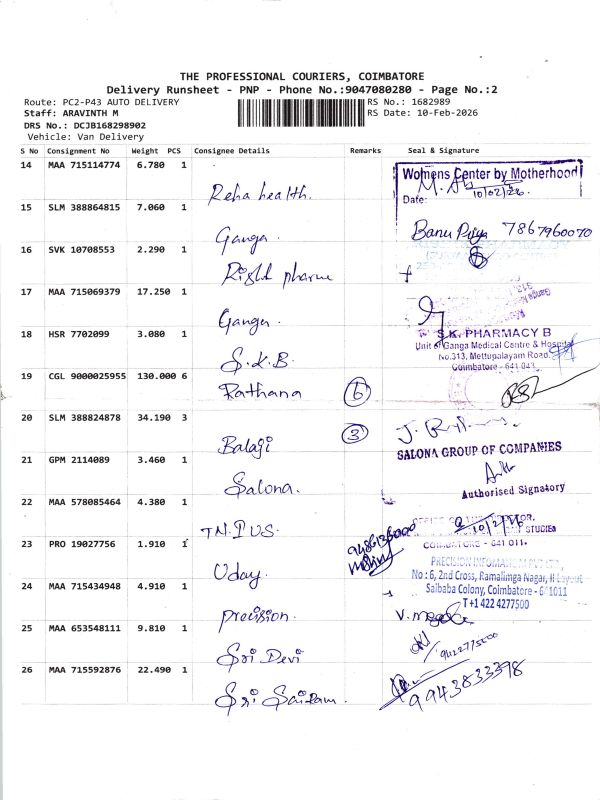 THE PROFESSIONAL COURIERS, COIMBATORE
Delivery Runsheet - PNP - Phone No.:9047080280 - Page No.:2
Route: PC2-P43 AUTO DELIVERY
RS No.: 1682989
Staff: ARAVINTH M
RS Date: 10-Feb-2026
DRS No.: DCJB168298902
Vehicle: Van Delivery
S No Consignment No Weight PCS Consignee Details Remarks Seal & Signature
14 MAA 715114774 6.780 1
Reha health.
Womens Center by Motherhood
Date: 10/02/26
15 SLM 388864815 7.060 1
Ganga.
Banu Priya 7867960070
16 SVK 10708553 2.290 1
Right pharme
17 MAA 715069379 17.250 1
Ganga.
18 HSR 7702099 3.080 1
S.K.B
S.K. PHARMACY B
Unit of Ganga Medical Centre & Hospital
No.313, Mettupalayam Road,
Coimbatore - 641 043.
19 CGL 9000025955 130.000 6
Rathana 6
20 SLM 388824878 34.190 3
Balaji 3
21 GPM 2114089 3.460 1
Salona.
SALONA GROUP OF COMPANIES
Authorised Signatory
22 MAA 578085464 4.380 1
T.N.P.US.
10/2/26
STUDIES
COIMBATORE - 641 011.
23 PRO 19027756 1.910 1
Uday.
24 MAA 715434948 4.910 1
precision.
PRECISION INFOMATIC PVT LTD.,
No : 6, 2nd Cross, Ramalimga Nagar, II Layout
Saibaba Colony, Coimbatore - 641011
T+1 422 4277500
25 MAA 653548111 9.810 1
Sri Devi
26 MAA 715592876 22.490 1
Sri Sairam.
9943833398